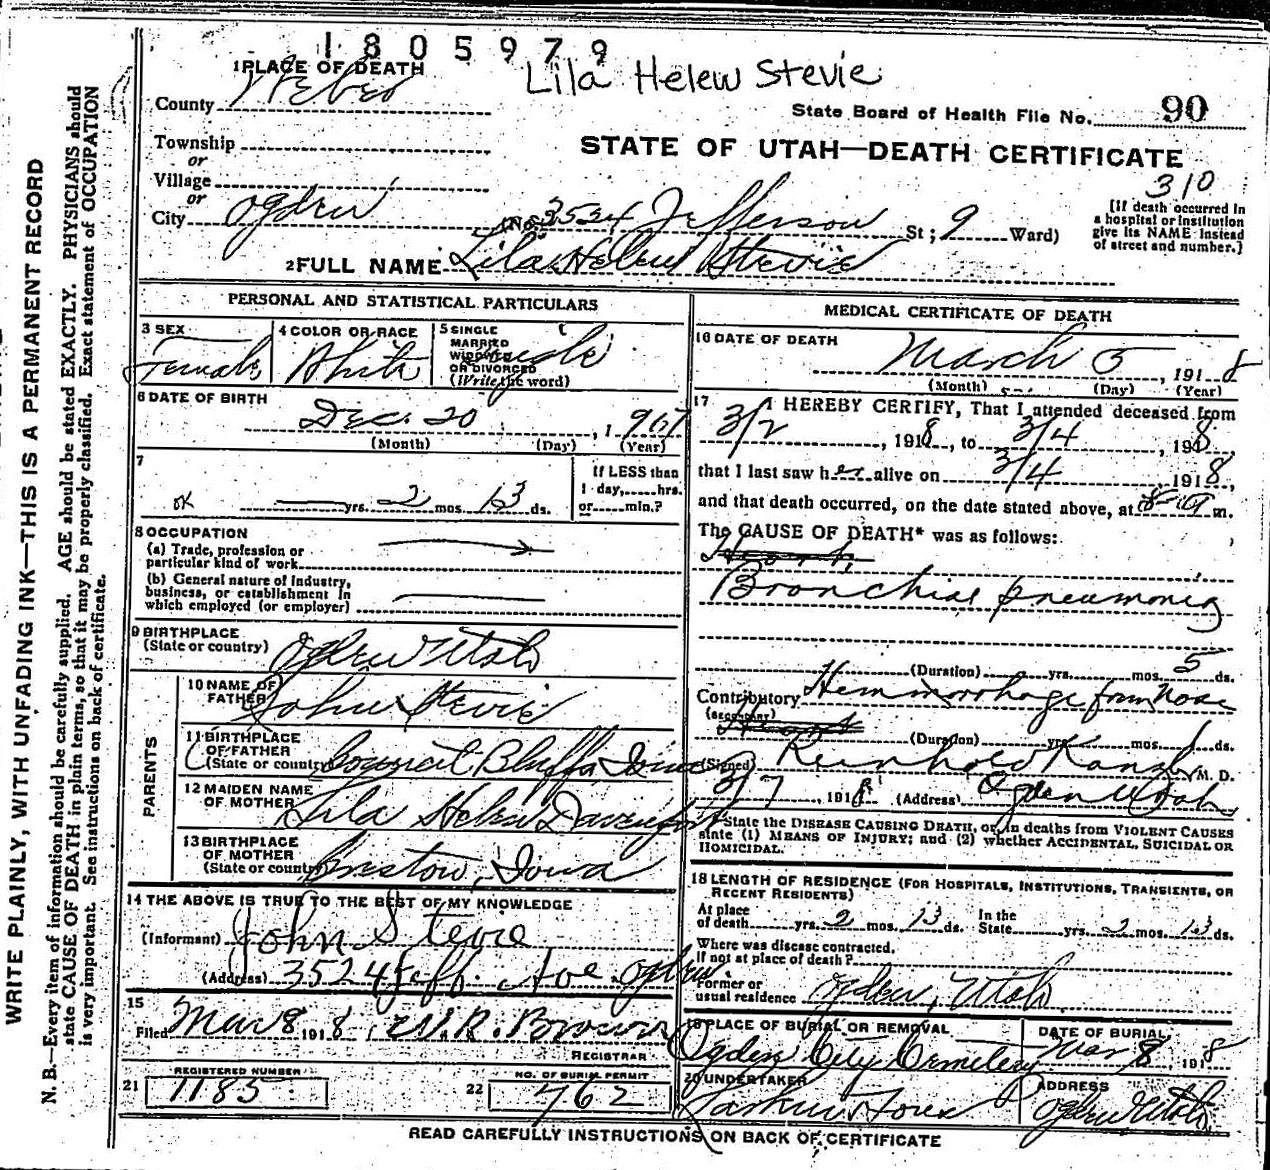 1805979
1 PLACE OF DEATH
Lila Helen Stevie
County Weber
State Board of Health File No. 90
Township
STATE OF UTAH—DEATH CERTIFICATE
or
Village
310
or
City Ogden (No. 3534 Jefferson St; 9 Ward)
[If death occurred in a hospital or institution give its NAME instead of street and number.]
2 FULL NAME Lila Helen Stevie
PERSONAL AND STATISTICAL PARTICULARS
3 SEX Female
4 COLOR OR RACE White
5 SINGLE MARRIED WIDOWED OR DIVORCED (Write the word) Single
6 DATE OF BIRTH Dec. 20, 1917
(Month) (Day) (Year)
7
OK yrs. 2 mos. 13 ds.
If LESS than 1 day, hrs. or min.?
8 OCCUPATION
(a) Trade, profession or particular kind of work
(b) General nature of industry, business, or establishment in which employed (or employer)
9 BIRTHPLACE
(State or country) Ogden Utah
PARENTS
10 NAME OF FATHER John Stevie
11 BIRTHPLACE OF FATHER (State or country) Council Bluffs, Iowa
12 MAIDEN NAME OF MOTHER Lila Helen Davenport
13 BIRTHPLACE OF MOTHER (State or country) Creston, Iowa
14 THE ABOVE IS TRUE TO THE BEST OF MY KNOWLEDGE
(Informant) John Stevie
(Address) 3524 Jeff. Ave. Ogden
15
Filed Mar 8 1918, W. R. Brown
REGISTRAR
21 REGISTERED NUMBER 1185
22 NO. OF BURIAL PERMIT 762
MEDICAL CERTIFICATE OF DEATH
16 DATE OF DEATH March 5, 1918
(Month) (Day) (Year)
17 I HEREBY CERTIFY, That I attended deceased from
3/2, 1918, to 3/4, 1918,
that I last saw her alive on 3/4 1918,
and that death occurred, on the date stated above, at m.
The CAUSE OF DEATH* was as follows:
Bronchial pneumonia
(Duration) yrs. mos. 5 ds.
Contributory Hemmorrhage from Nose
(SECONDARY)
(Duration) yrs. mos. 1 ds.
(Signed) Reinhold M. D.
3/7, 1918 (Address) Ogden Utah
*State the DISEASE CAUSING DEATH, or, in deaths from VIOLENT CAUSES
state (1) MEANS OF INJURY; and (2) whether ACCIDENTAL, SUICIDAL OR
HOMICIDAL.
18 LENGTH OF RESIDENCE (FOR HOSPITALS, INSTITUTIONS, TRANSIENTS, OR
RECENT RESIDENTS)
At place of death yrs. 2 mos. 13 ds. In the State yrs. 2 mos. 13 ds.
Where was disease contracted.
If not at place of death?
Former or usual residence Ogden, Utah
19 PLACE OF BURIAL OR REMOVAL Ogden City Cemetery
DATE OF BURIAL Mar 8, 1918
20 UNDERTAKER
ADDRESS Ogden Utah
READ CAREFULLY INSTRUCTIONS ON BACK OF CERTIFICATE
WRITE PLAINLY, WITH UNFADING INK—THIS IS A PERMANENT RECORD
N. B.—Every item of information should be carefully supplied. AGE should be stated EXACTLY. PHYSICIANS should
state CAUSE OF DEATH in plain terms, so that it may be properly classified. Exact statement of OCCUPATION
is very important. See instructions on back of certificate.